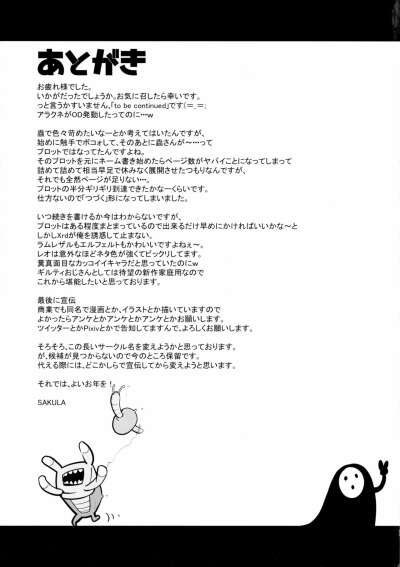 あとがき
お疲れ様でした。
いかがだったでしょうか。お気に召したら幸いです。
っと言うかすいません、「to be continued」です(＝_＝;
アラクネがOD発動したってのに…w
蟲で色々苛めたいなーとか考えてはいたんですが、
始めに触手でボコォして、そのあとに蟲さんが～…って
プロットではなってたんですよね。
そのプロットを元にネーム書き始めたらページ数がヤバイことになってしまって
詰めて詰めて相当早足で休みなく展開させたつもりなんですが、
それでも全然ページが足りない…。
プロットの半分ギリギリ到達できたかなーくらいです。
仕方ないので「つづく」形になってしまいました。
いつ続きを書けるか今はわからないですが、
プロットはある程度まとまっているので出来るだけ早めにかければいいかな～と
しかしXrdが俺を誘惑して止まない。
ラムレザルもエルフェルトもかわいいですよねぇ～。
レオは意外なほどネタ色が強くてビックリしてます。
真面目なカッコイイキャラだと思っていたのにw
ギルティおじさんとしては待望の新作家庭用なので
これから堪能したいと思っております。
最後に宣伝
商業でも同名で漫画とか、イラストとか描いていますので
よかったらアンケとかアンケとかアンケとかお願いします。
ツイッターとかPixivとかで告知してますんで、よろしくお願いします。
そろそろ、この長いサークル名を変えようかと思っております。
が、候補が見つからないので今のところ保留です。
代える際には、どこかしらで宣伝してから変えようと思います。
それでは、よいお年を！
SAKULA